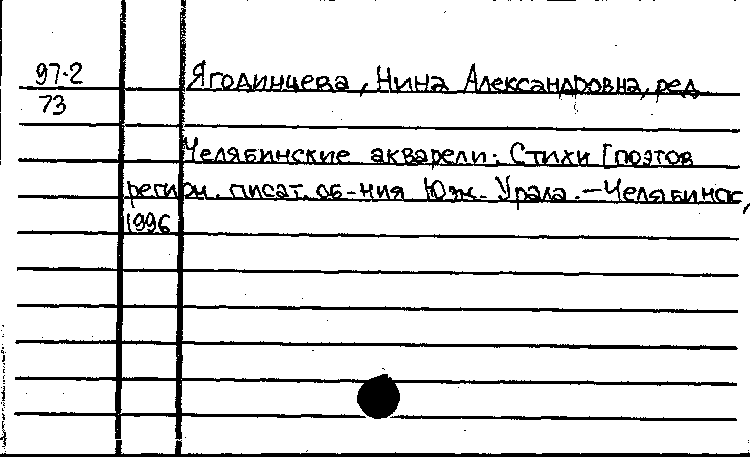 97-2
Ягодинцева, Нина Александровна, ред.
73
Челябинские акварели: Стихи [поэтов
регион. писат. об-ния Юж. Урала. — Челябинск,
1996